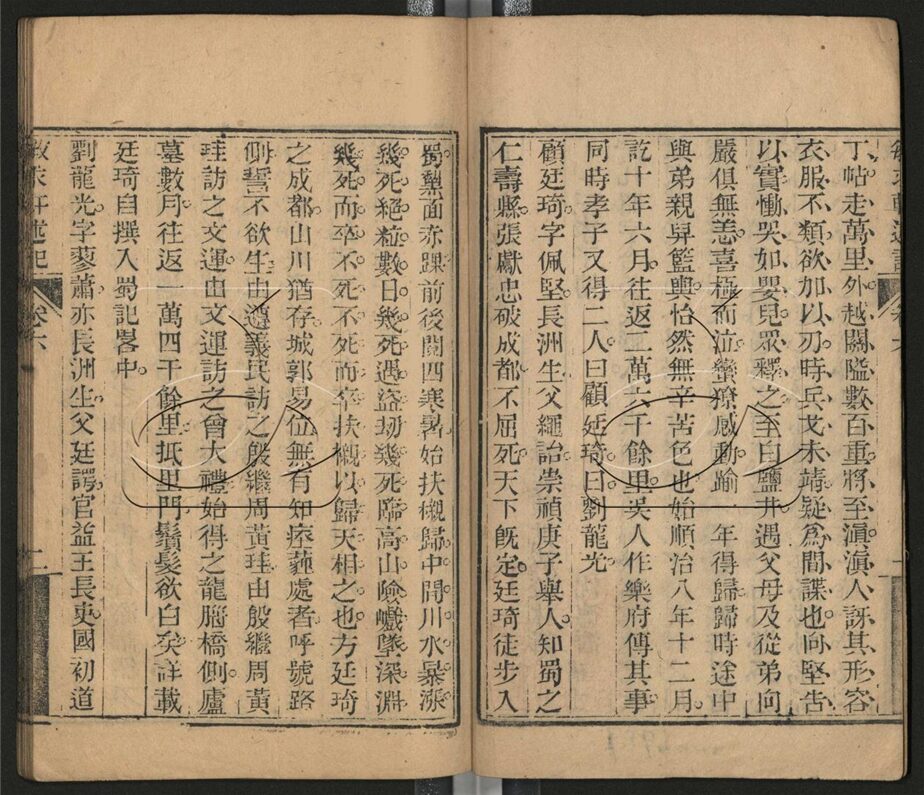 丁帖走萬里外越關隘數百重將至滇滇人訝其形容
衣服不類欲加以刃時兵戈未靖疑爲間諜也向堅告
以實慟哭如嬰兒眾釋之至白鹽井遇父母及從弟向
嚴俱無恙喜極而泣蠻獠感動踰一年得歸歸時途中
與弟親舁籃輿怡然無辛苦色也始順治八年十二月
訖十年六月往返二萬六千餘里吳人作樂府傳其事
同時孝子又得二人曰顧廷琦曰劉龍光
顧廷琦字佩堅長洲生父繩詒崇禎庚子舉人知蜀之
仁壽縣張獻忠破成都不屈死天下既定廷琦徒步入
蜀黧面赤踝前後閱四寒暑始扶櫬歸中間川水暴漲
幾死絕粒數日幾死遇盜刼幾死臨高山險巇墜深淵
幾死而卒不死不死而卒扶櫬以歸天相之也方廷琦
之成都山川猶存城郭易位無有知瘞薶處者呼號路
側誓不欲生由遵義民訪之殷繼周黃珪由殷繼周黃
珪訪之文運由文運訪之曾大禮始得之龍腦橋側廬
墓數月往返一萬四千餘里抵里門鬚髮欲白矣詳載
廷琦自撰入蜀記畧中
劉龍光字蓼蕭亦長洲生父廷諤官益王長史國初道
述記
卷六